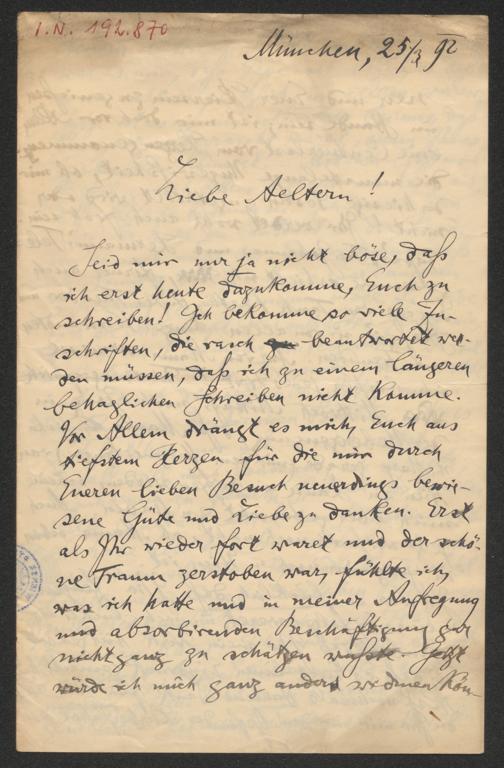 I.N. 192.870
München, 25/3 92
Liebe Aeltern!
Seid mir nur ja nicht böse, daß
ich erst heute dazukomme, Euch zu
schreiben! Ich bekomme so viele Zu-
schriften, die rasch zu beantwortet wer-
den müssen, daß ich zu einem längeren
behaglichen Schreiben nicht komme.
Vor Allem drängt es mich, Euch aus
tiefstem Herzen für die mir durch
Eueren lieben Besuch neuerdings bewie-
sene Güte und Liebe zu danken. Erst
als Ihr wieder fort waret und der schö-
ne Traum zerstoben war, fühlte ich,
was ich hatte und in meiner Aufregung
und absorbirenden Beschäftigung gar
nicht ganz zu schätzen wußte. Jetzt
würde ich mich ganz anders widmen kön-